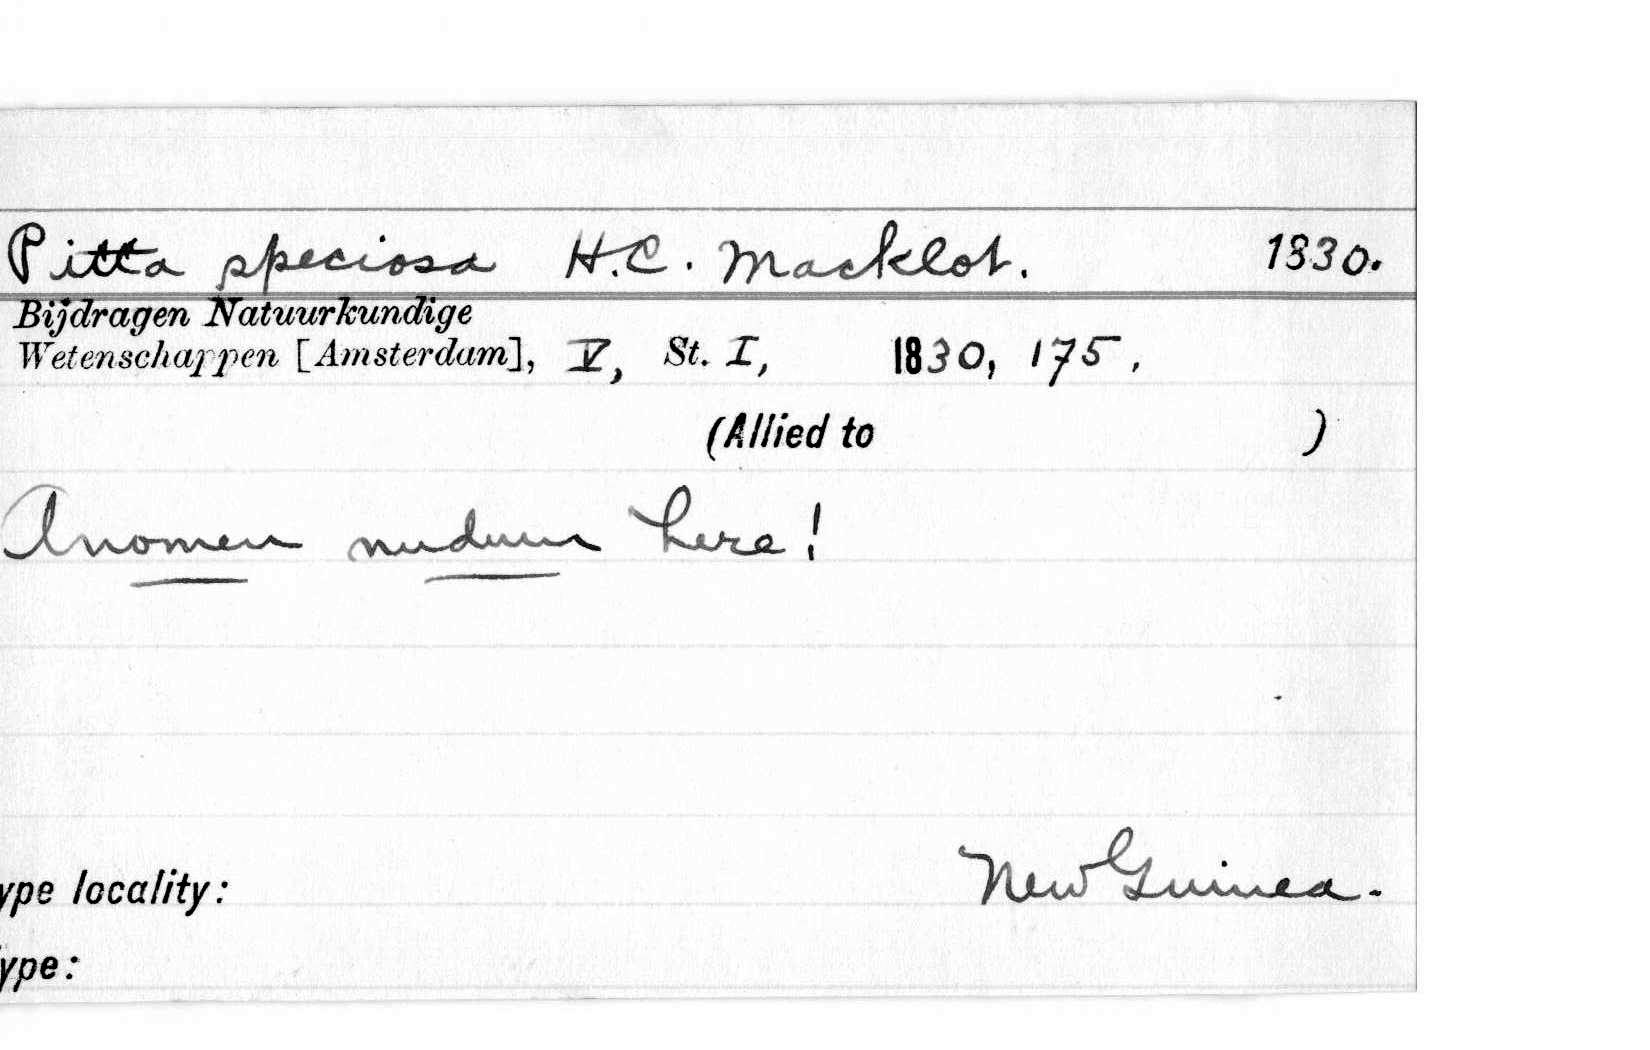 Pitta speciosa H.C. Macklot. 1830.
Bijdragen Natuurkundige
Wetenschappen [Amsterdam], V, St. I, 1830, 175,
(Allied to )
A nomen nudum here!
ype locality: New Guinea.
ype: